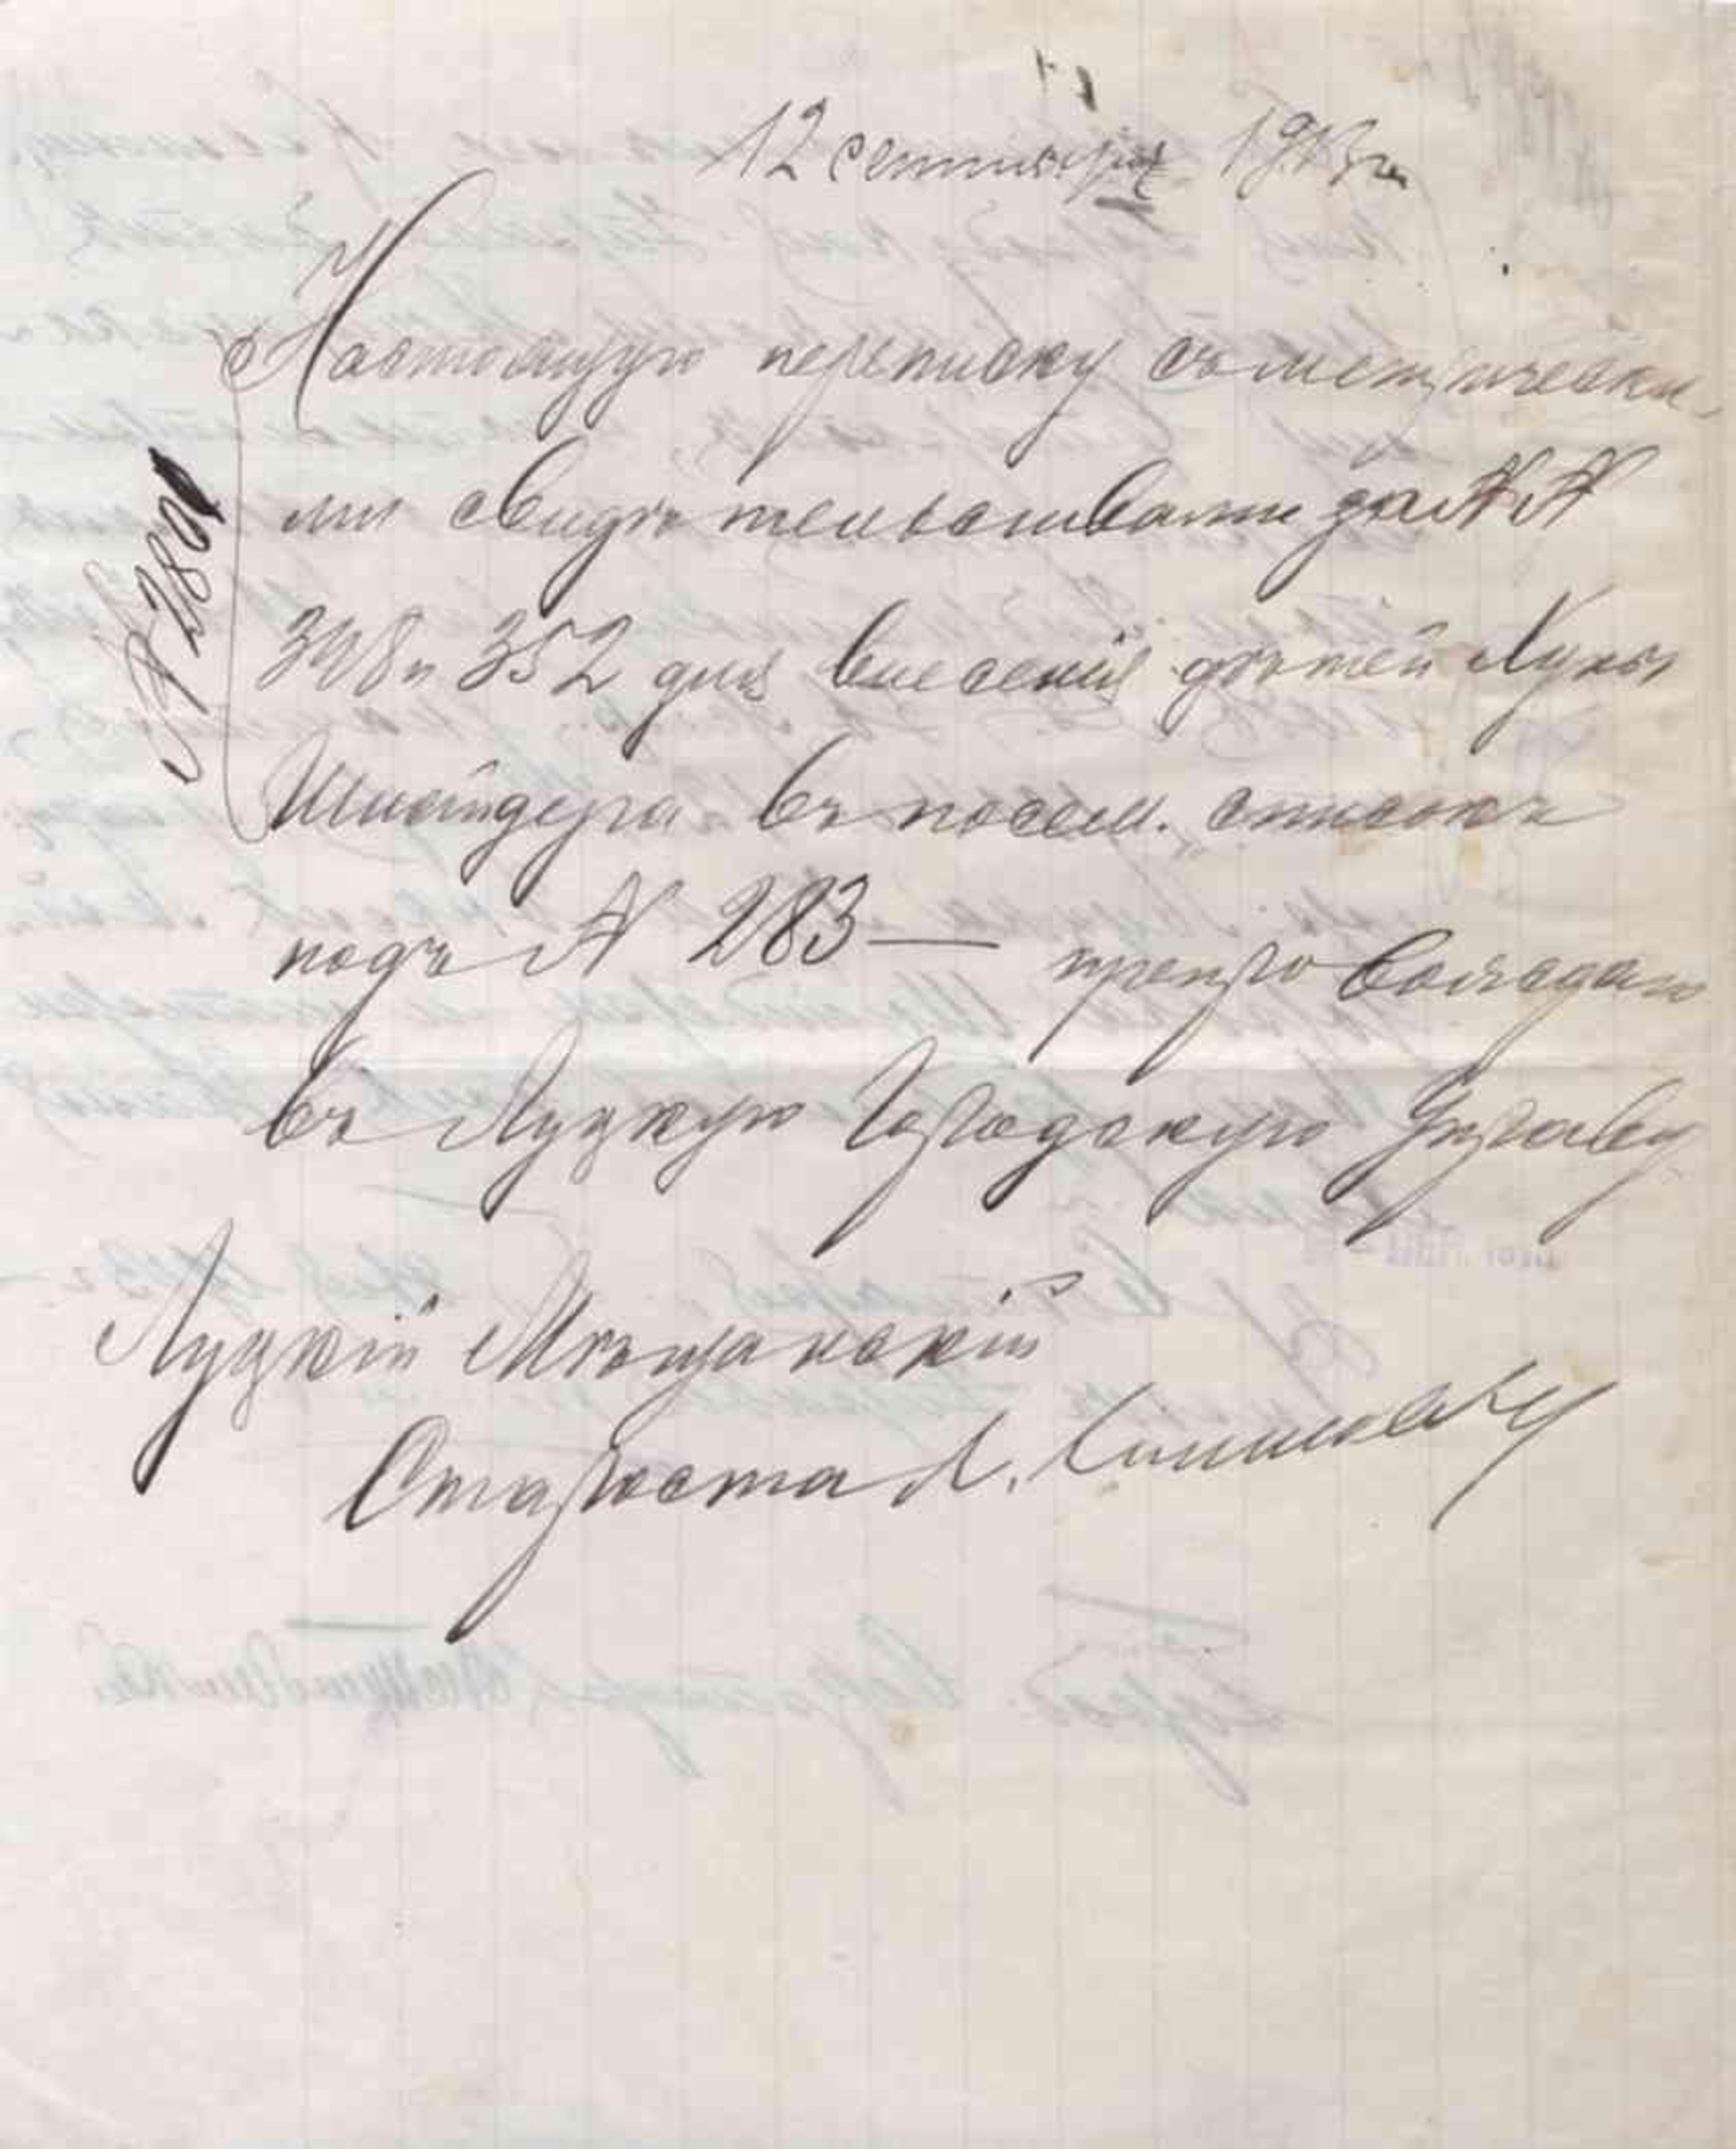 12 сентября 1913 г.
№ 2801
Настоящую переписку съ метрически-
ми свидѣтельствами за №№
348 и 352 для внесенія дѣтей Луки
Шнайдера въ посем. списокъ
подъ № 283 — препровождаю
въ Луцкую Городскую Управу
Луцкій Мѣщанскій
Староста А.